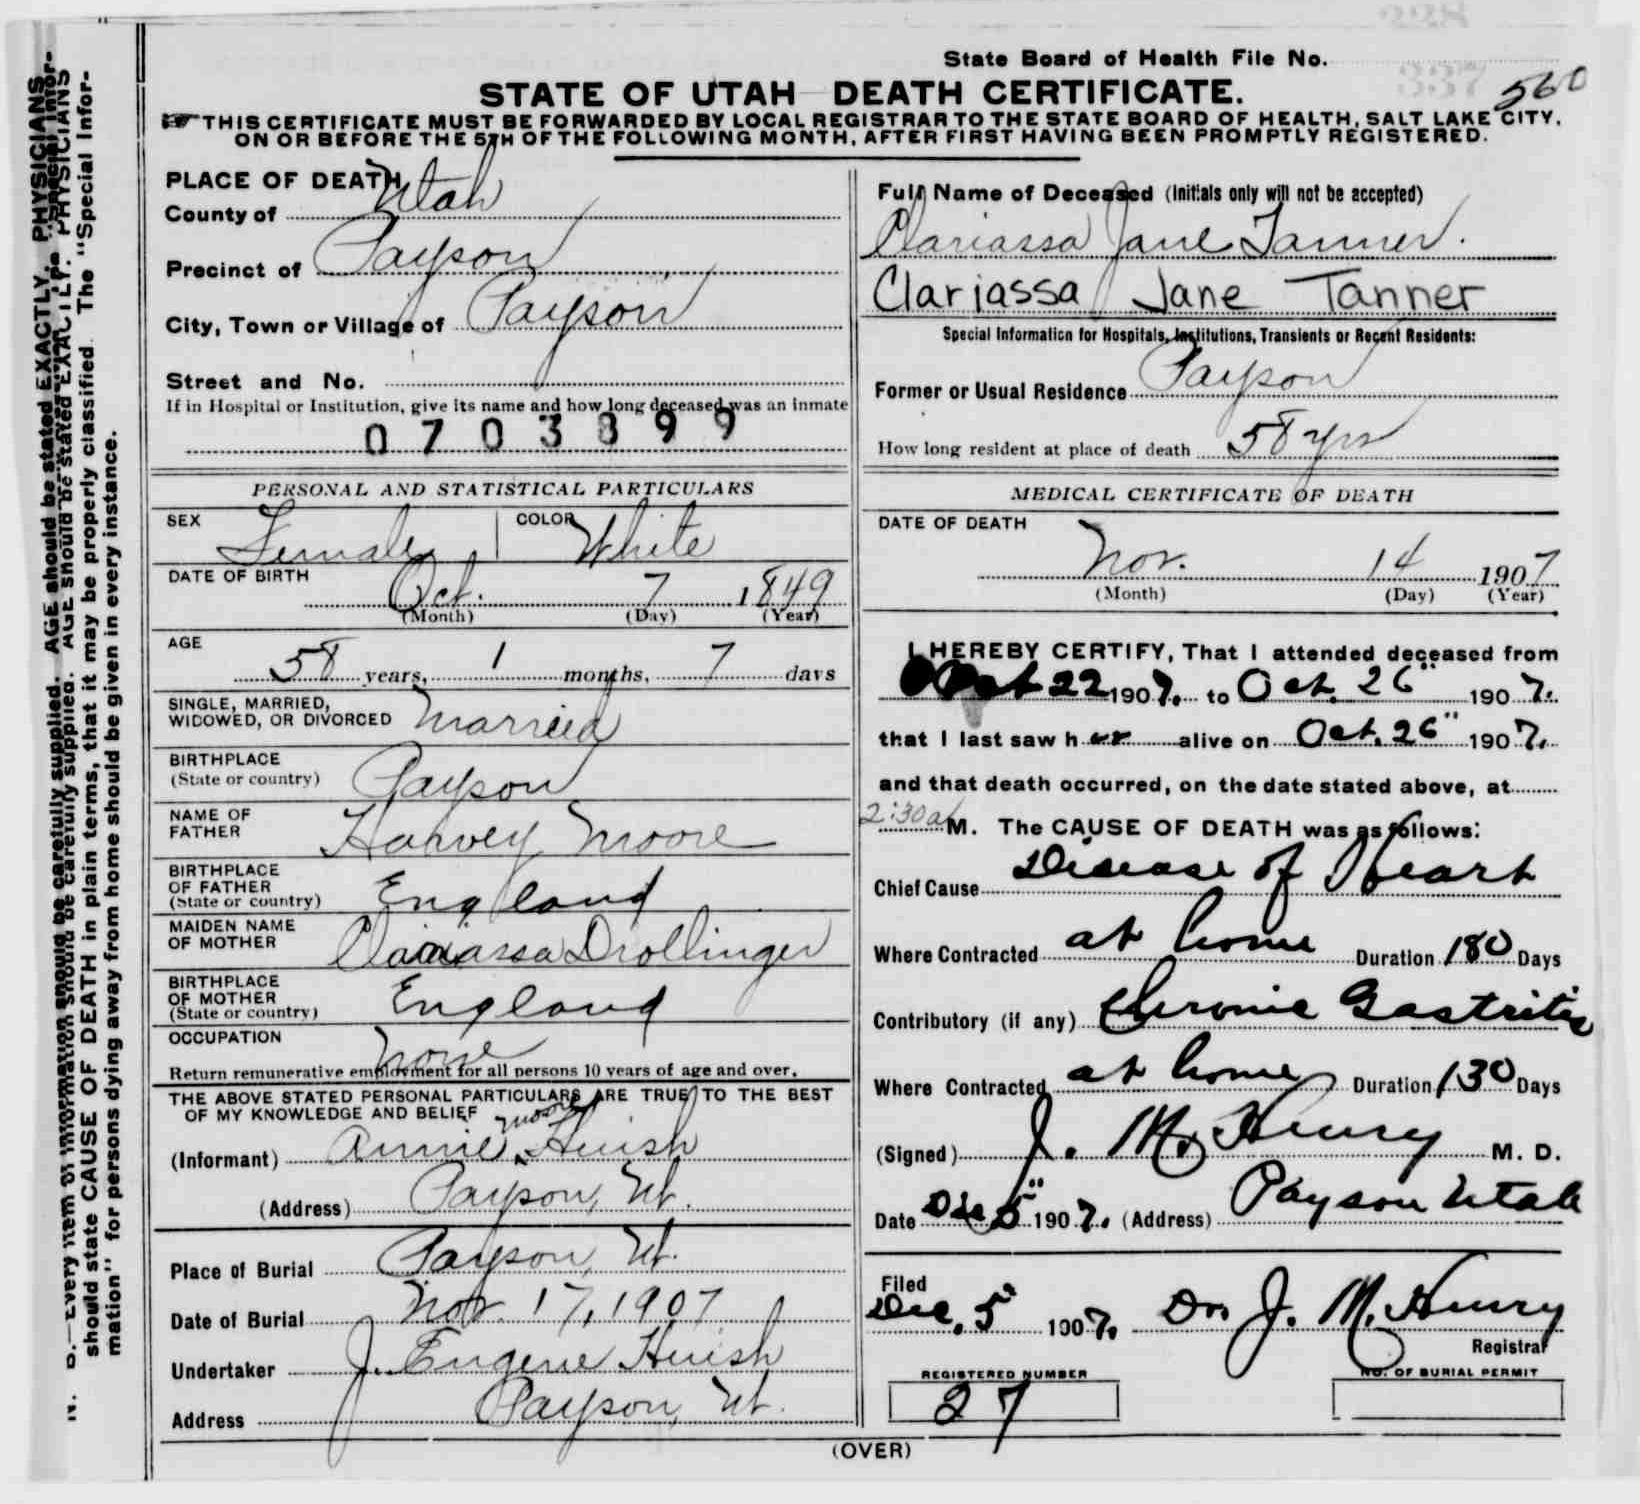 State Board of Health File No.
560
STATE OF UTAH DEATH CERTIFICATE.
THIS CERTIFICATE MUST BE FORWARDED BY LOCAL REGISTRAR TO THE STATE BOARD OF HEALTH, SALT LAKE CITY,
ON OR BEFORE THE 5TH OF THE FOLLOWING MONTH, AFTER FIRST HAVING BEEN PROMPTLY REGISTERED.
PLACE OF DEATH
County of Utah
Precinct of Payson
City, Town or Village of Payson
Street and No.
If in Hospital or Institution, give its name and how long deceased was an inmate
0703899
Full Name of Deceased (Initials only will not be accepted)
Clariassa Jane Tanner.
Clariassa Jane Tanner
Special Information for Hospitals, Institutions, Transients or Recent Residents:
Former or Usual Residence Payson
How long resident at place of death 58 yrs
PERSONAL AND STATISTICAL PARTICULARS
SEX Female COLOR White
DATE OF BIRTH
Oct. 7 1849
(Month) (Day) (Year)
AGE
58 years, 1 months, 7 days
SINGLE, MARRIED,
WIDOWED, OR DIVORCED Married
BIRTHPLACE
(State or country) Payson
NAME OF
FATHER Harvey Moore
BIRTHPLACE
OF FATHER
(State or country) England
MAIDEN NAME
OF MOTHER Clariassa Drollinger
BIRTHPLACE
OF MOTHER
(State or country) England
OCCUPATION
None
Return remunerative employment for all persons 10 years of age and over.
THE ABOVE STATED PERSONAL PARTICULARS ARE TRUE TO THE BEST
OF MY KNOWLEDGE AND BELIEF
(Informant) Annie Moore Huish
(Address) Payson, Ut.
Place of Burial Payson, Ut.
Date of Burial Nov. 17, 1907
Undertaker J. Eugene Huish
Address Payson, Ut.
MEDICAL CERTIFICATE OF DEATH
DATE OF DEATH
Nov. 14 1907
(Month) (Day) (Year)
I HEREBY CERTIFY, That I attended deceased from
Oct 22 1907. to Oct. 26" 1907.
that I last saw her alive on Oct. 26" 1907.
and that death occurred, on the date stated above, at
2:30 a M. The CAUSE OF DEATH was as follows:
Chief Cause Disease of Heart
Where Contracted at home Duration 180 Days
Contributory (if any) Chronic Gastritis
Where Contracted at home Duration 130 Days
(Signed) J. M. Henry M. D.
Date Dec 5" 1907. (Address) Payson Utah
Filed
Dec. 5" 1907. Dr. J. M. Henry
Registrar
REGISTERED NUMBER
27
NO. OF BURIAL PERMIT
(OVER)
N. B.—Every item of information should be carefully supplied. AGE should be stated EXACTLY. PHYSICIANS
should state CAUSE OF DEATH in plain terms, that it may be properly classified. The "Special Infor-
mation" for persons dying away from home should be given in every instance.